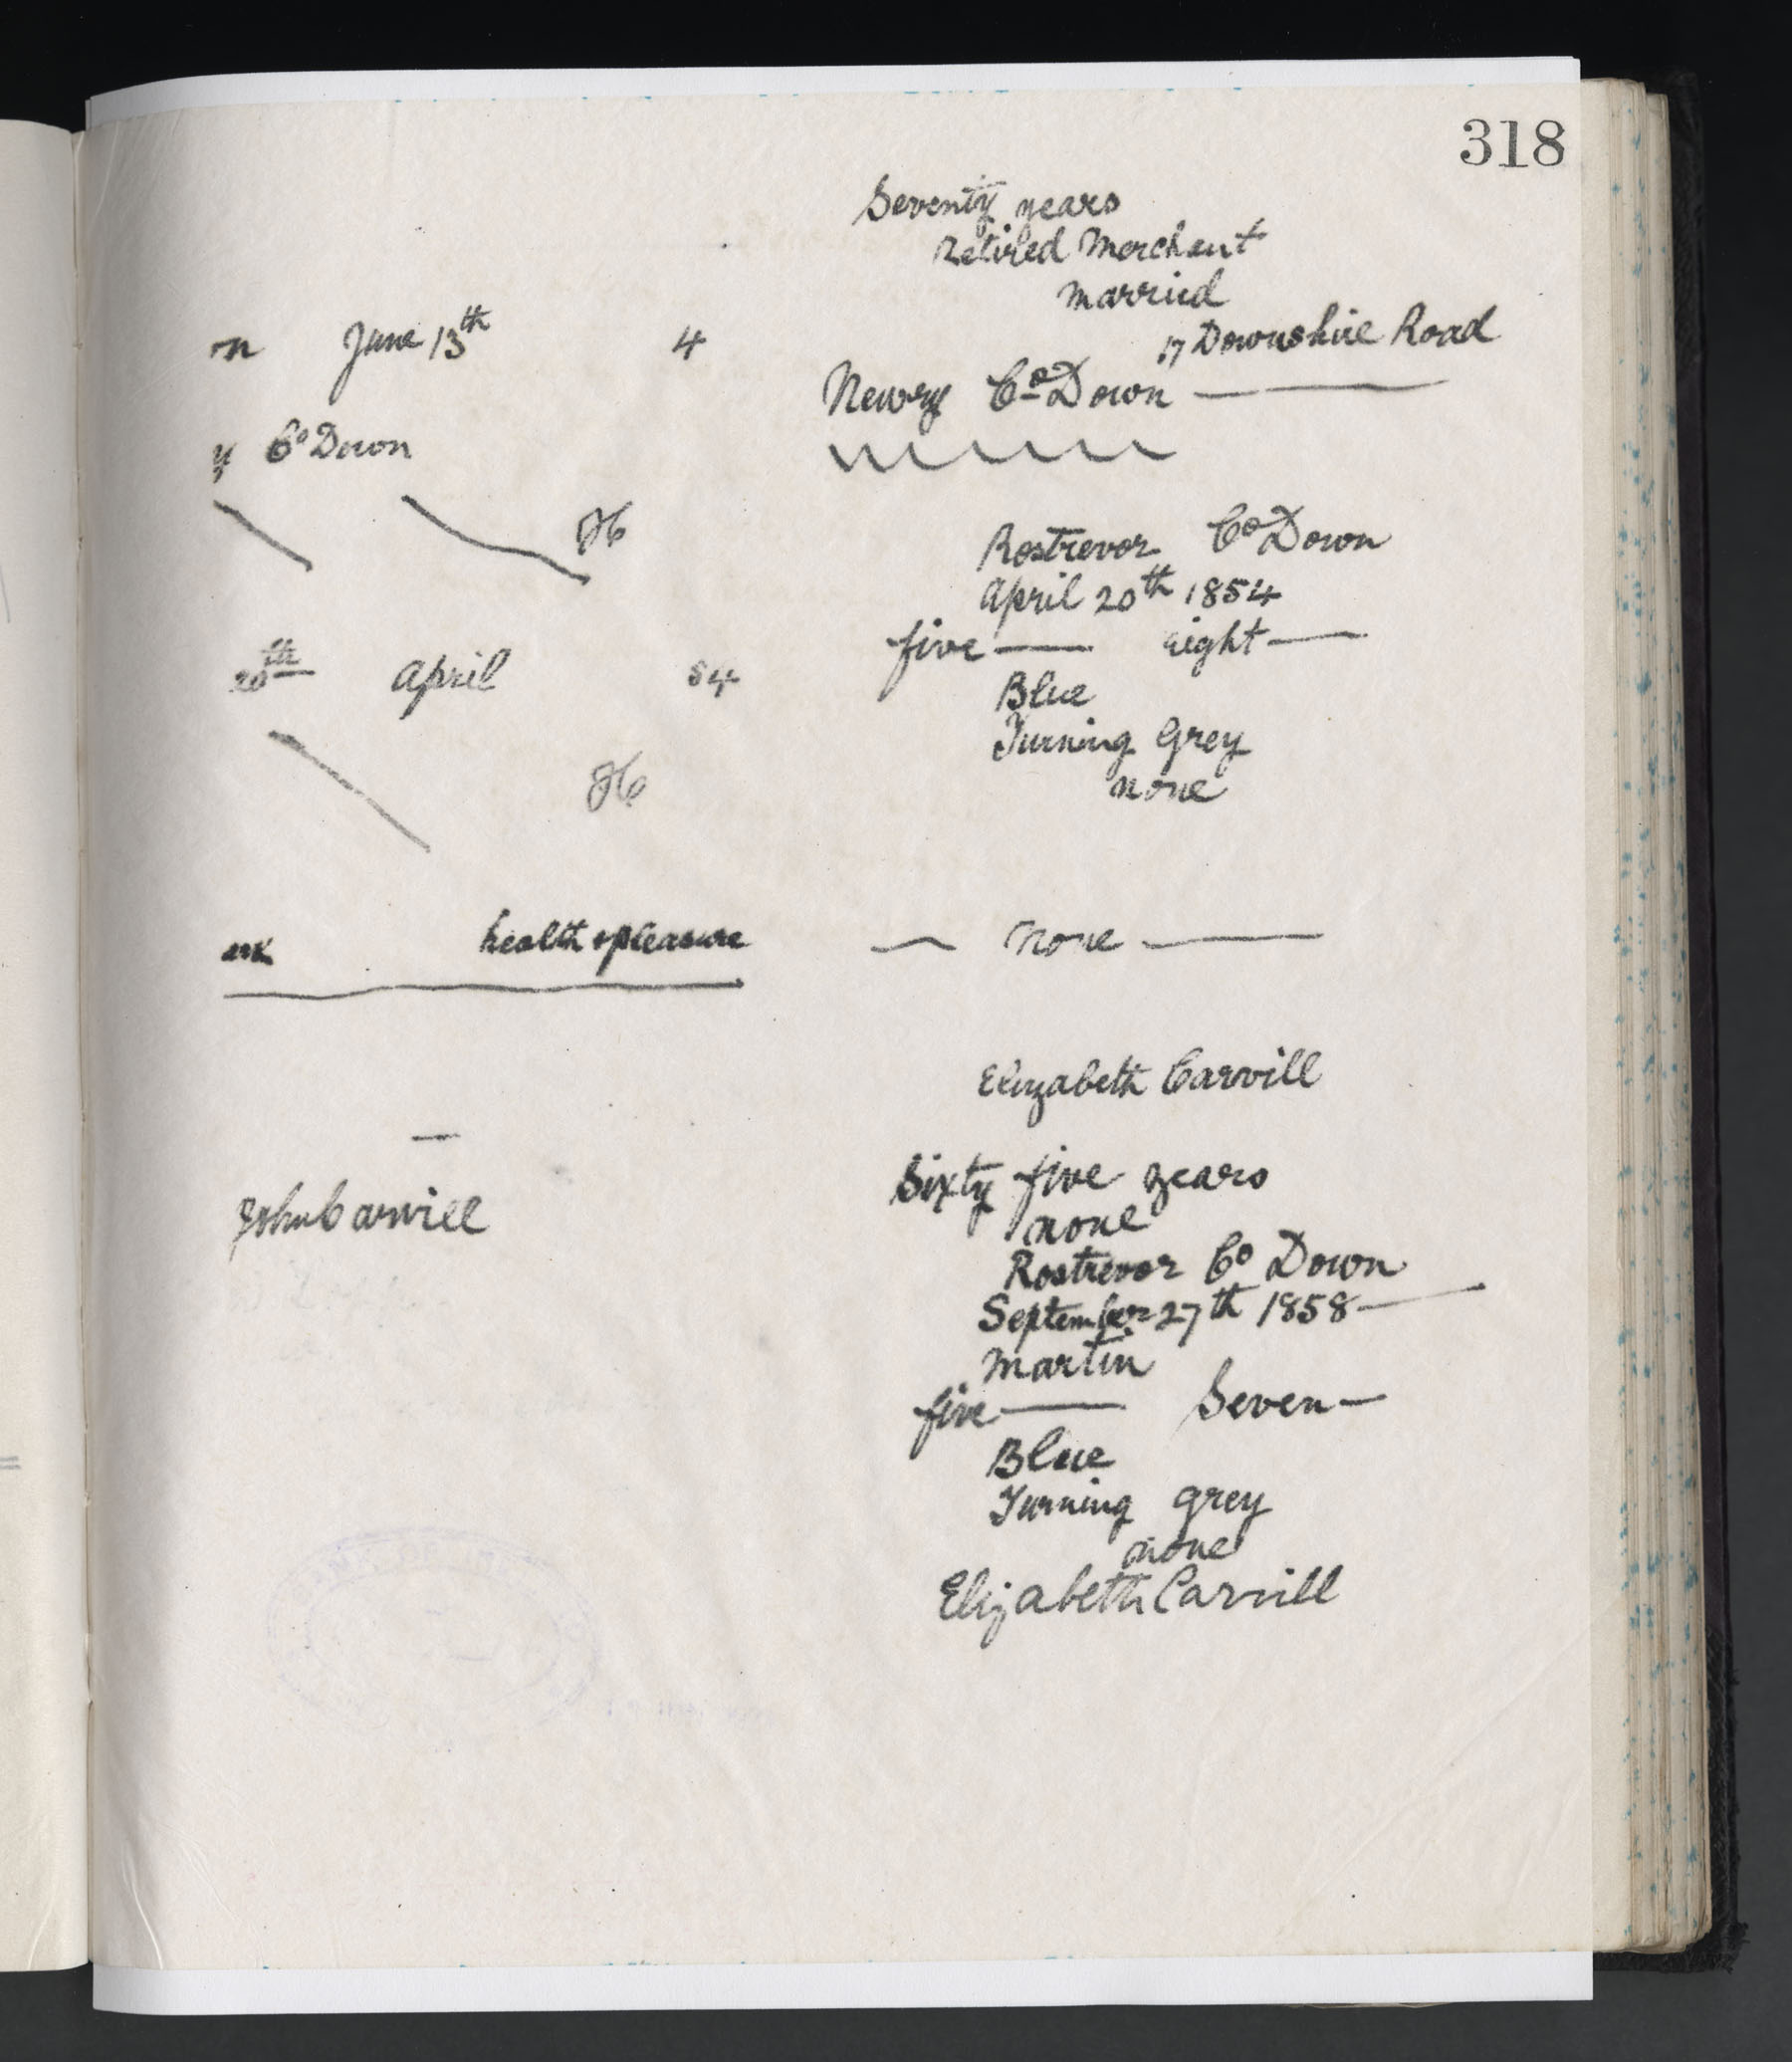 318
Seventy years
Retired Merchant
Married
17 Downshire Road
Newry Co Down
n June 13th 4
y Co Down
Rostrevor Co Down
April 20th 1854
five — eight —
Blue
Turning Grey
none
20th April 54
ark health & pleasure
— none —
Elizabeth Carvill
John Carvill
Sixty five years
none
Rostrevor Co Down
September 27th 1858 —
Martin
five — Seven —
Blue
Turning grey
none
Elizabeth Carvill